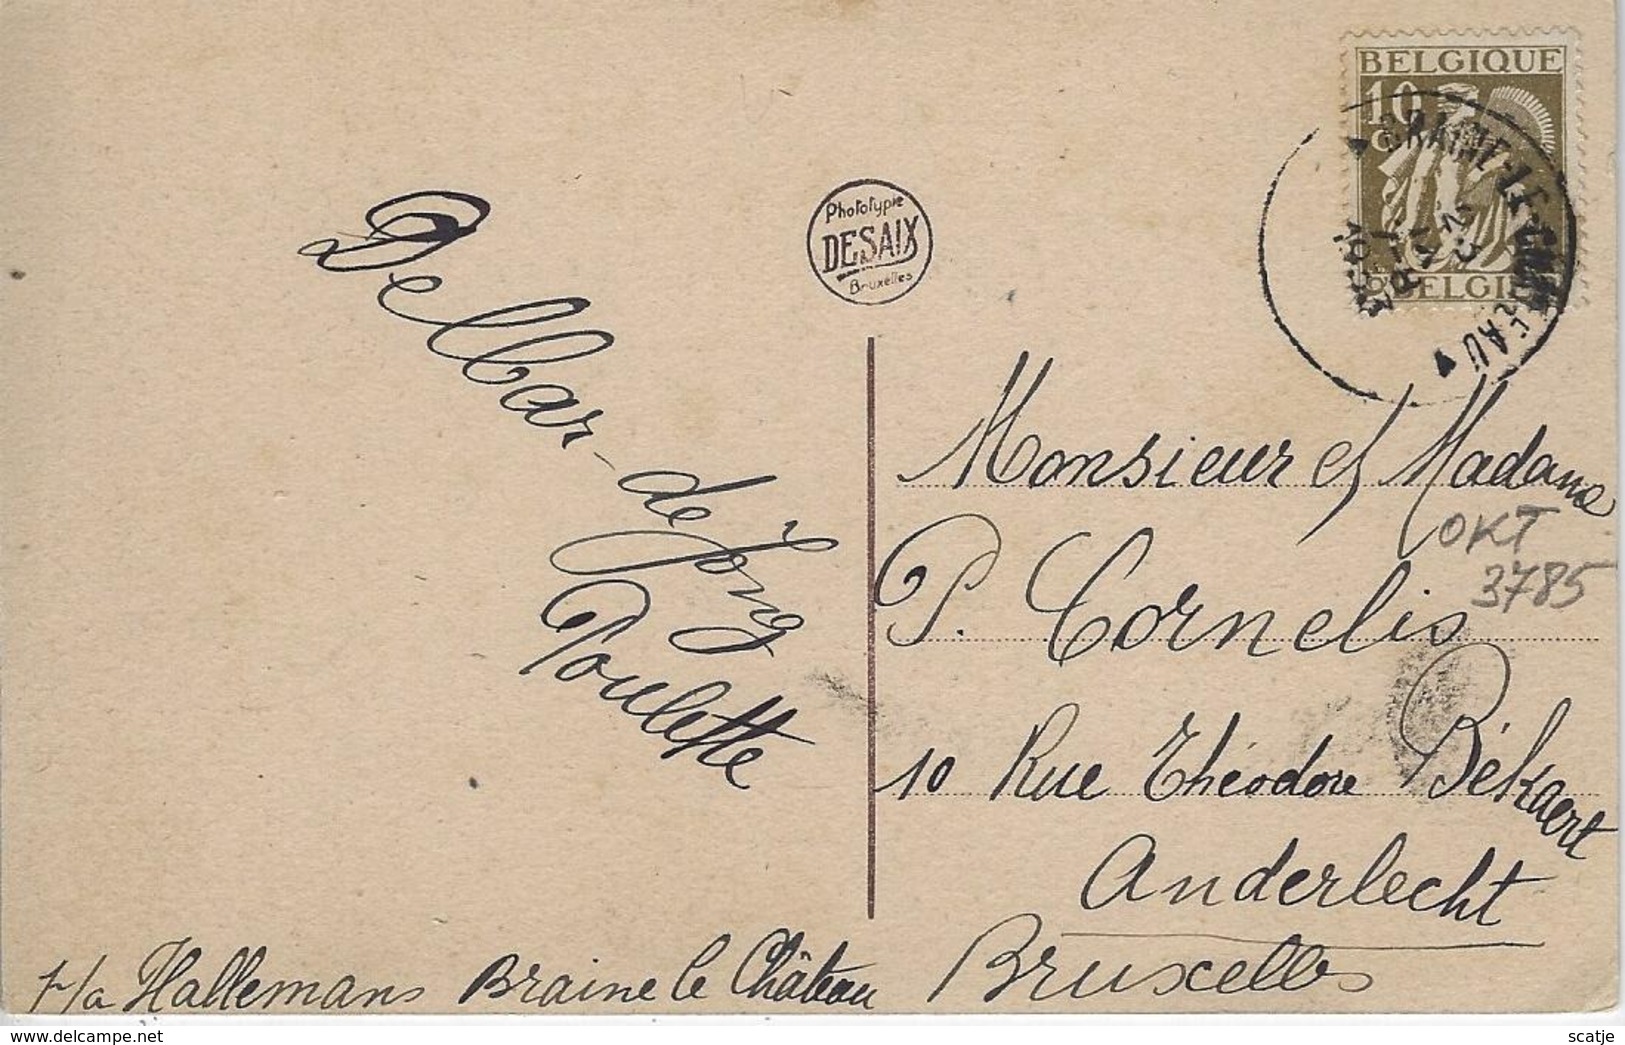 BELGIQUE
10
BRAINE-LE-CHATEAU
1933
BELGIE
Phototypie
DESAIX
Bruxelles
Delbar-de Jong
Poulette
Monsieur et Madame
OKT
3785
P. Cornelis
10 Rue Théodore Békaert
Anderlecht
Bruxelles
p/a Hallemans Braine le Château
delcampe.net
scatje